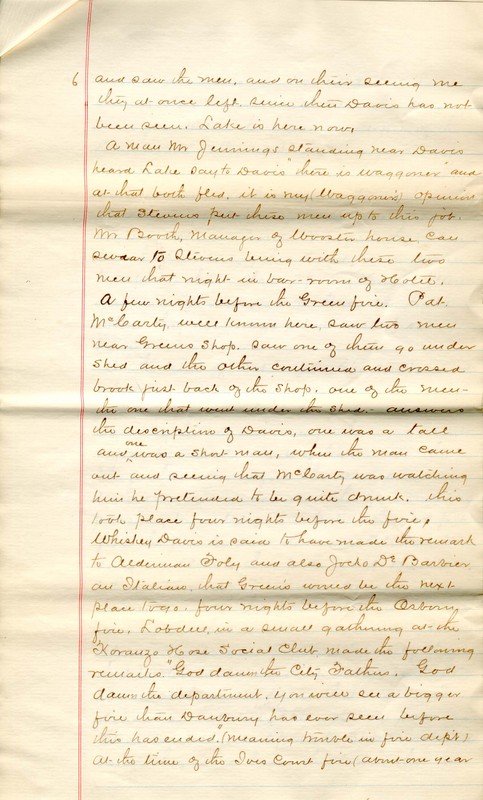 6 and saw the men. and on their seeing me
they at once left. since then Davis has not
been seen. Lake is here now.
A man Mr Jennings standing near Davis
heard Lake say to Davis "there is waggoner" and
at that both fled. it is my (Waggoner's) opinion
that Stevens put these men up to this job.
Mr Booth, Manager of Wooster house, can
swear to Stevens being with these two
men that night in bar-room of Hotel.
A few nights before the Green fire. Pat.
McCarty, well known here, saw two men
near Greens Shop. saw one of them go under
shed and the other continued and crossed
brook just back of the shop. one of the men-
the one that went under the shed,- answers
the description of Davis, one was a tall
and one was a short man, when the man came
out and seeing that McCarty was watching
him he pretended to be quite drunk. this
took place four nights before the fire,
Whiskey Davis is said to have made the remark
to Alderman Foly and also Jocko De Barbier
an Italian, that Greens would be the next
place to go. four nights before the Osborn
fire. Lobdell, in a small gathering at the
Kozanzo Hose Social Club, made the following
remarks. "God damn the City Fathers. God
damn the department. you will see a bigger
fire than Danbury has ever seen before
this has ended." (meaning trouble in fire dept)
At the time of the Ives Court fire (about one year